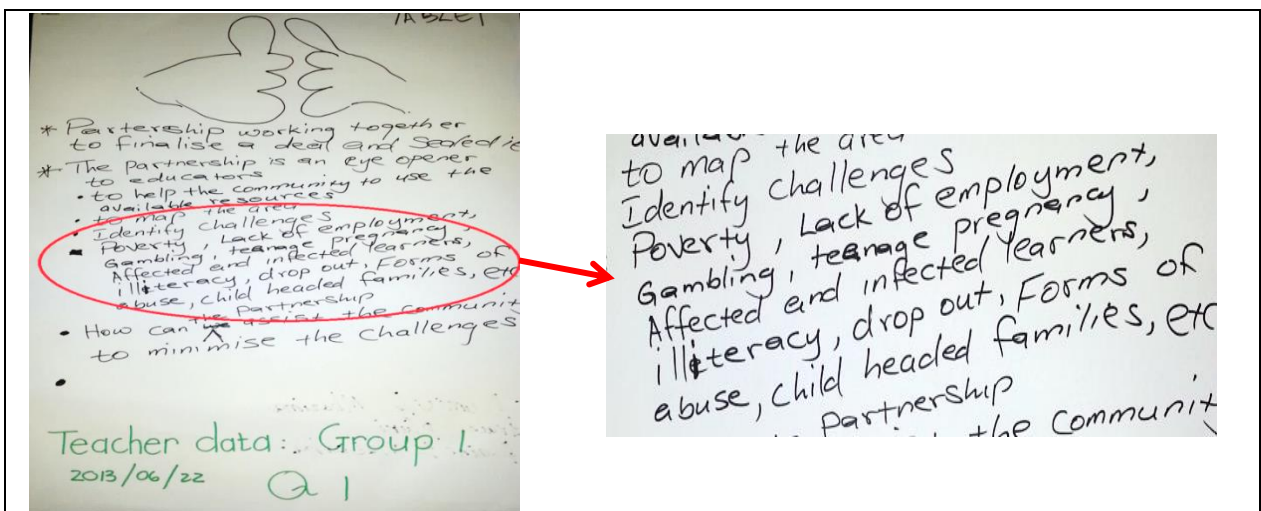 TABLE 1
* Parternship working together
to finalise a deal and Sealed it
* The partnership is an eye opener
to educators
• to help the community to use the
available resources
• to map the area
• Identify challenges
Poverty, Lack of employment,
Gambling, teenage pregnancy,
Affected and infected learners,
illiteracy, drop out, Forms of
abuse, child headed families, etc
the partnership
• How can assist the communit
to minimise the challenges
•
Teacher data: Group 1
2013/06/22
Q 1
to map the area
Identify challenges
Poverty, Lack of employment,
Gambling, teenage pregnancy,
Affected and infected learners,
illiteracy, drop out, Forms of
abuse, child headed families, etc
partnership
the communit